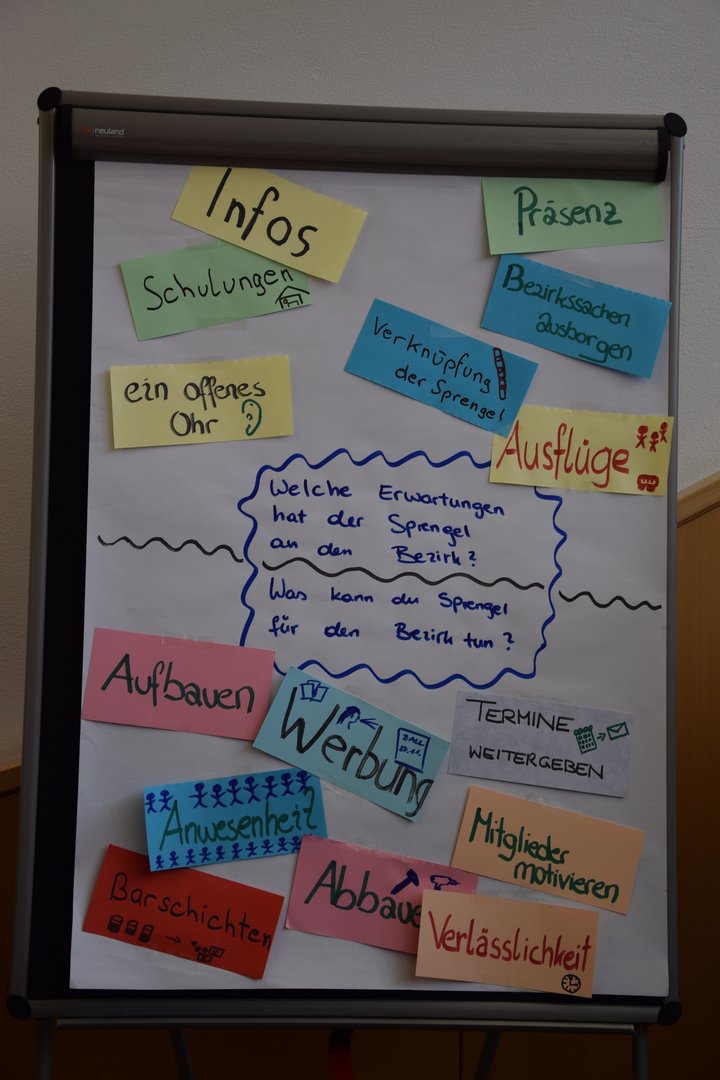 neuland
Infos
Präsenz
Schulungen
Bezirkssachen
ausborgen
Verknüpfung
der Sprengel
ein offenes
Ohr
Ausflüge
Welche Erwartungen
hat der Sprengel
an den Bezirk?
Was kann du Sprengel
für den Bezirk tun?
Aufbauen
Werbung
BALL
TERMINE
WEITERGEBEN
Anwesenheit
Mitglieder
motivieren
Barschichten
Abbaue
Verlässlichkeit